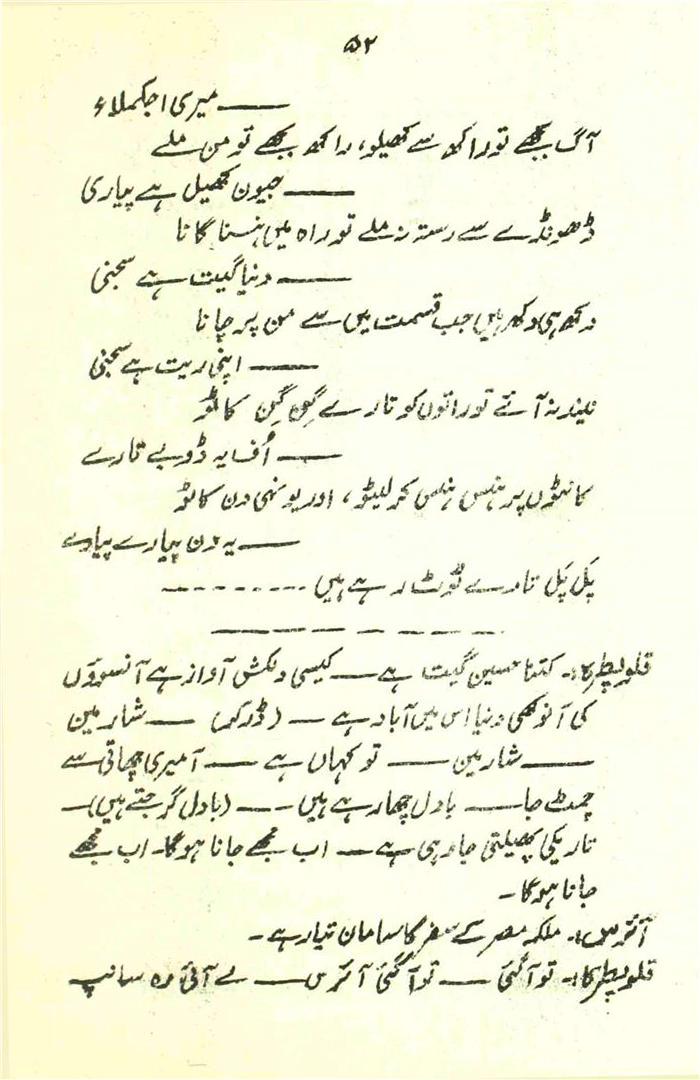 ۵۲
—— میری اجکملاء
آگ بجھے تو راکھ سے کھیلو، راکھ بجھے تو من ملے
—— جیون کھیل ہے پیاری
ڈھونڈے سے رستہ نہ ملے تو راہ میں ہنسنا گانا
—— دنیا گیت ہے سجنی
دکھ ہی دکھ ہیں جب قسمت میں سے من پر چانا
—— اپنی ریت ہے سجنی
نیند نہ آئے تو راتوں کو تارے گِن گِن کاٹو
—— اُف یہ ڈوبے تارے
کانٹوں پر ہنس ہنس کر لیٹو، اور یونہی دن کاٹو
—— یہ دن پیارے پیارے
پَل پَل تارے ٹوٹ رہے ہیں ---------
قلوپطرکا:۔ کتنا حسین گیت ہے — کیسی دلکش آواز ہے آنسوؤں
کی انوکھی دنیا اس میں آباد ہے — (ڈرکر) — شارمین
—— شارمین —— تو کہاں ہے —— آ میری چھاتی سے
چمٹ جا —— بادل چھا رہے ہیں —— (بادل گرجتے ہیں) —
تاریکی پھیلتی جا رہی ہے —— اب مجھے جانا ہوگا۔ اب مجھے
جانا ہوگا۔
آئرس:۔ ملکہ مصر کے سفر کا سامان تیار ہے۔
قلوپطرکا:۔ تو آگئی —— تو آگئی آئرس —— لے آئی وہ سانپ